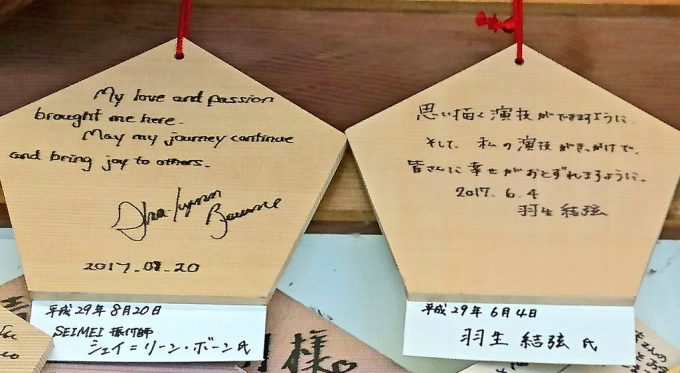 My love and passion
brought me here.
May my journey continue
and bring joy to others.
Shae-Lynn
Bourne
2017.08.20
平成29年8月20日
SEIMEI 振付師
シェイ=リーン・ボーン氏
思い描く演技ができますように。
そして、私の演技がきっかけで、
皆さんに幸せがおとずれますように。
2017. 6. 4
羽生結弦
平成29年6月4日
羽生結弦氏
様。